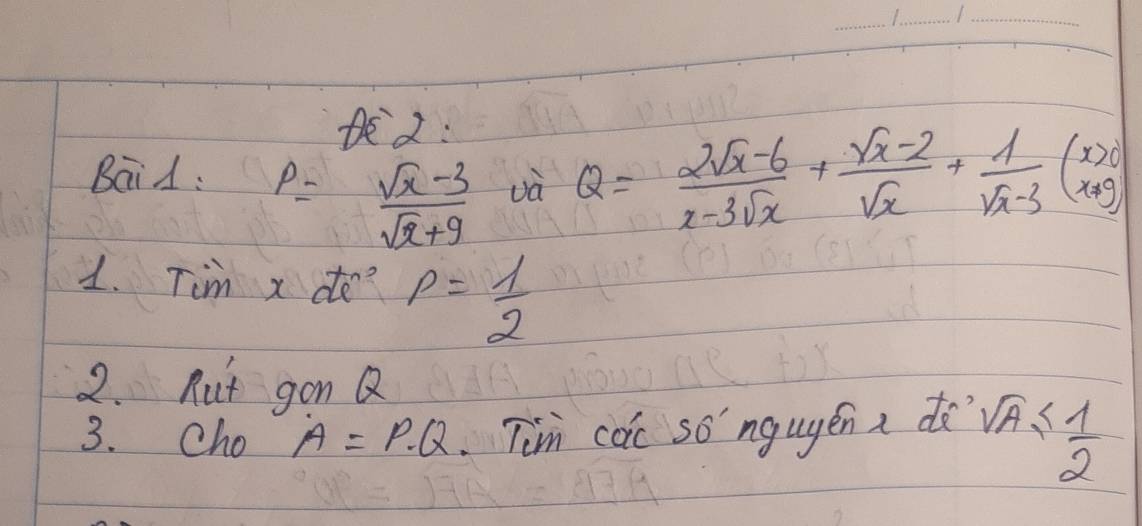 ....../......./................
Đề 2:
Bài 1: P = (√x-3)/(√x+9) và Q = (2√x-6)/(x-3√x) + (√x-2)/√x + 1/(√x-3) (x>0 x≠9)
1. Tìm x để P = 1/2
2. Rút gọn Q
3. Cho A = P.Q. Tìm các số nguyên x để √A ≤ 1/2